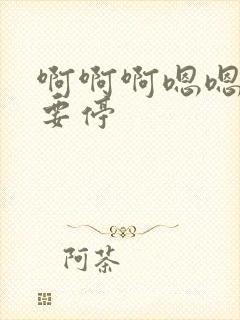 啊啊啊嗯嗯
要停
阿茶